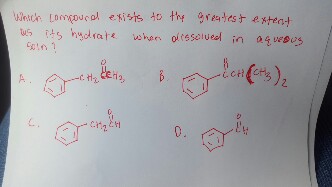 Which compound exists to the greatest extent
as its hydrate when dissolved in aqueous
soln?
A. O
-CH2CCH3
B. O
CCH(CH3)2
C. O
-CH2CH
D. O
CH